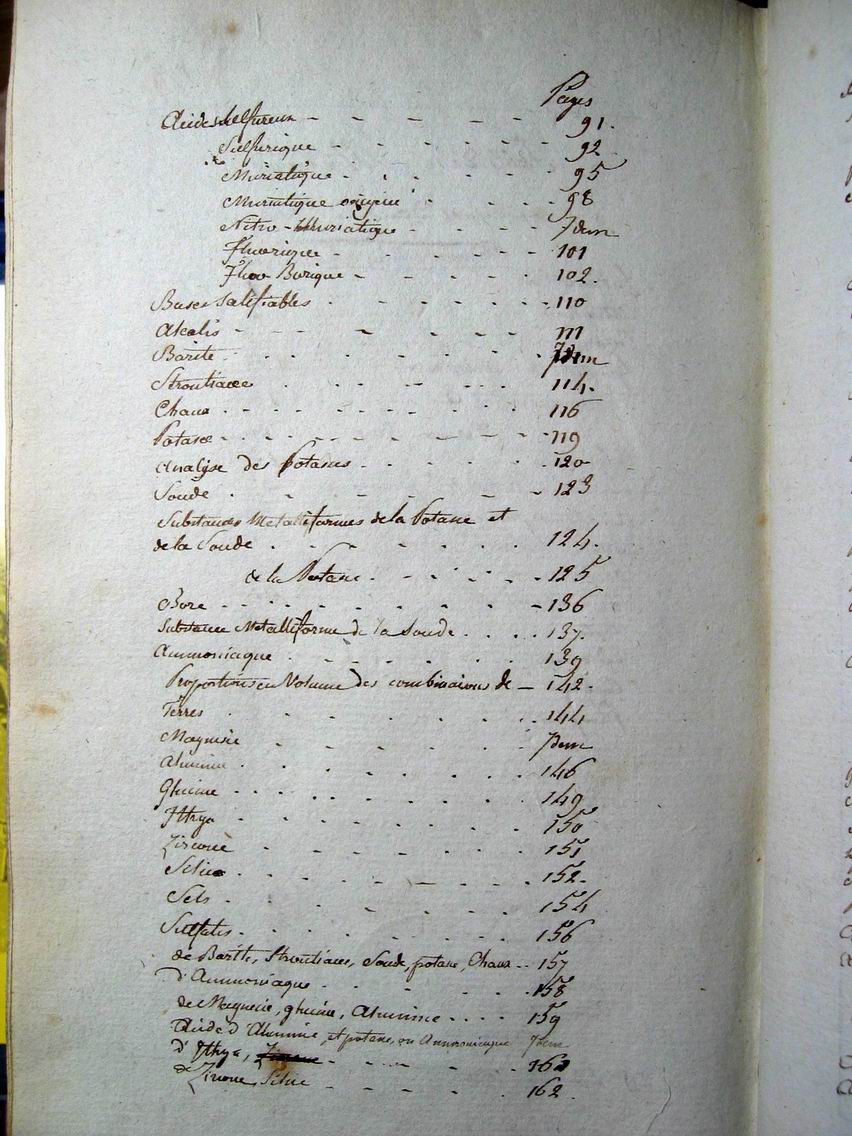 Pages
Acide sulfureux - - - - - - - 91.
Sulfurique - - - - - - 92
Muriatique - - - - - - 95
Muriatique oxigéné - - - - 98
Nitro-Muriatique - - - - Idem
Fluorique - - - - - - 101
Fluo Borique - - - - - 102.
Bases Salifiables - - - - - 110
Alcalis - - - - - - 111
Barite - - - - - - Idem
Strontiane - - - - - - 114.
Chaux - - - - - - - 116
Potasse - - - - - - - 119
Analyse des Potasses - - - - 120
Soude - - - - - - 123
Substances Metalliformes de la Potasse et
de la Soude - - - - - - 124.
de la Potasse - - - - - 125
Bore - - - - - - - 136
Substance Metalliforme de la Soude . . . . 137.
Ammoniaque - - - - - 139
Proportions en Volume des combinaisons de - 142.
Terres - - - - - - 144
Magnesie - - - - - - Idem
Alumine - - - - - - 146
Glucine - - - - - - 149
Ittrya - - - - - - 150
Zircone - - - - - - 151
Silice - - - - - - 152.
Sels - - - - - - 154
Sulfates - - - - - - 156
de Barite, Strontiane, Soude, potasse, Chaux - - 157
d'Ammoniaque - - - - - 158
de Magnesie, glucine, Alumine - - - - 159
Acide d'Alumine, et potasse, ou Ammoniaque Idem
d'Ittrya, - - - - - 161
de Zircone, Silice - - - - - 162.